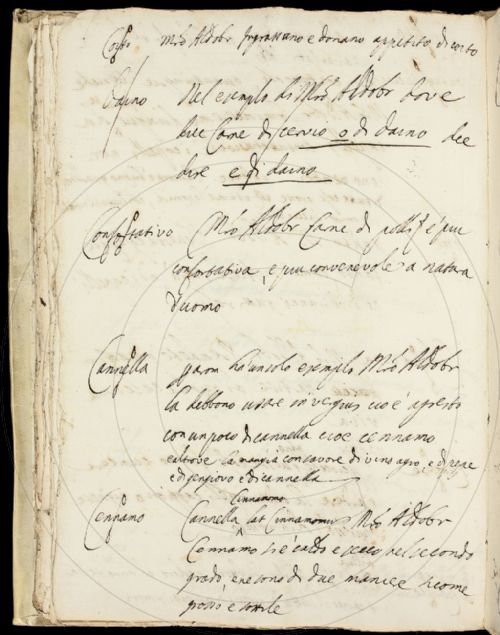 Coito Mro Aldobr Ingrassano e donano appetito di coito
Daino Nel esempio di Mro Aldobr dove
dice Carne di cervio o di daino dee
dire e di daino
Confortativo Mro Aldobr Carne di polli è piu
confortativa, e piu convenevole a natura
d'uomo
Cannella ha un solo esempio Mro Aldobr
la debbono usare in cio è agresto
con un poco di cannella cioe cennamo
altrove la mangia con savore di vino agro, e di
e di gengiovo e di cannella
Cinnamomo
Cennamo Cannella lat Cinnamomum Mro Aldobr
Cennamo si è caldo e secco nel secondo
grado, e ne sono di due maniere sicome
grosso e sottile